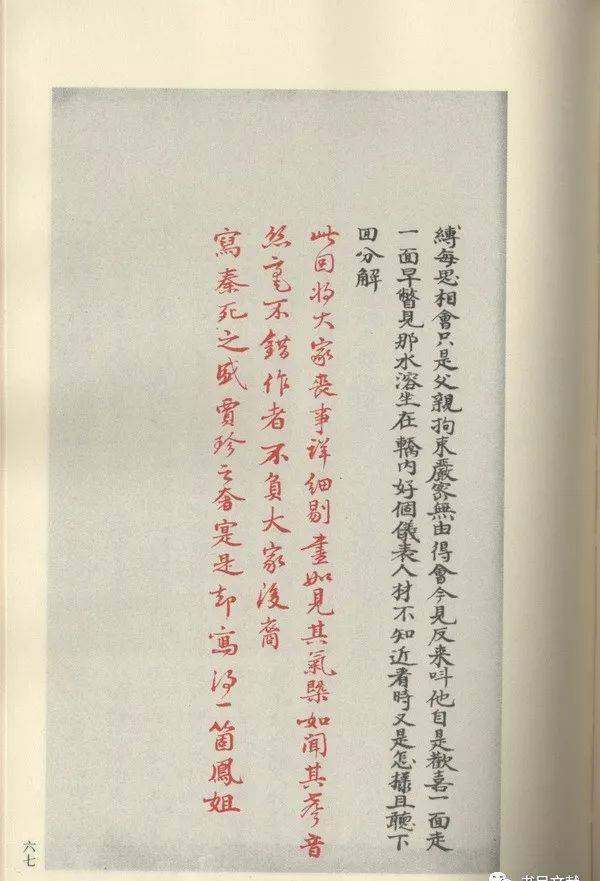 縛每思相會只是父親拘束嚴密無由得會今見反来呌他自是歡喜一面走
一面早瞥見那水溶坐在轎内好個儀表人材不知近看時又是怎樣且聽下
回分解
此回将大家喪事详細剔盡如見其氣槩如聞其聲音
絲毫不錯作者不負大家後裔
寫秦死之盛賈珍之奢寔是却寫得一箇鳳姐
六七